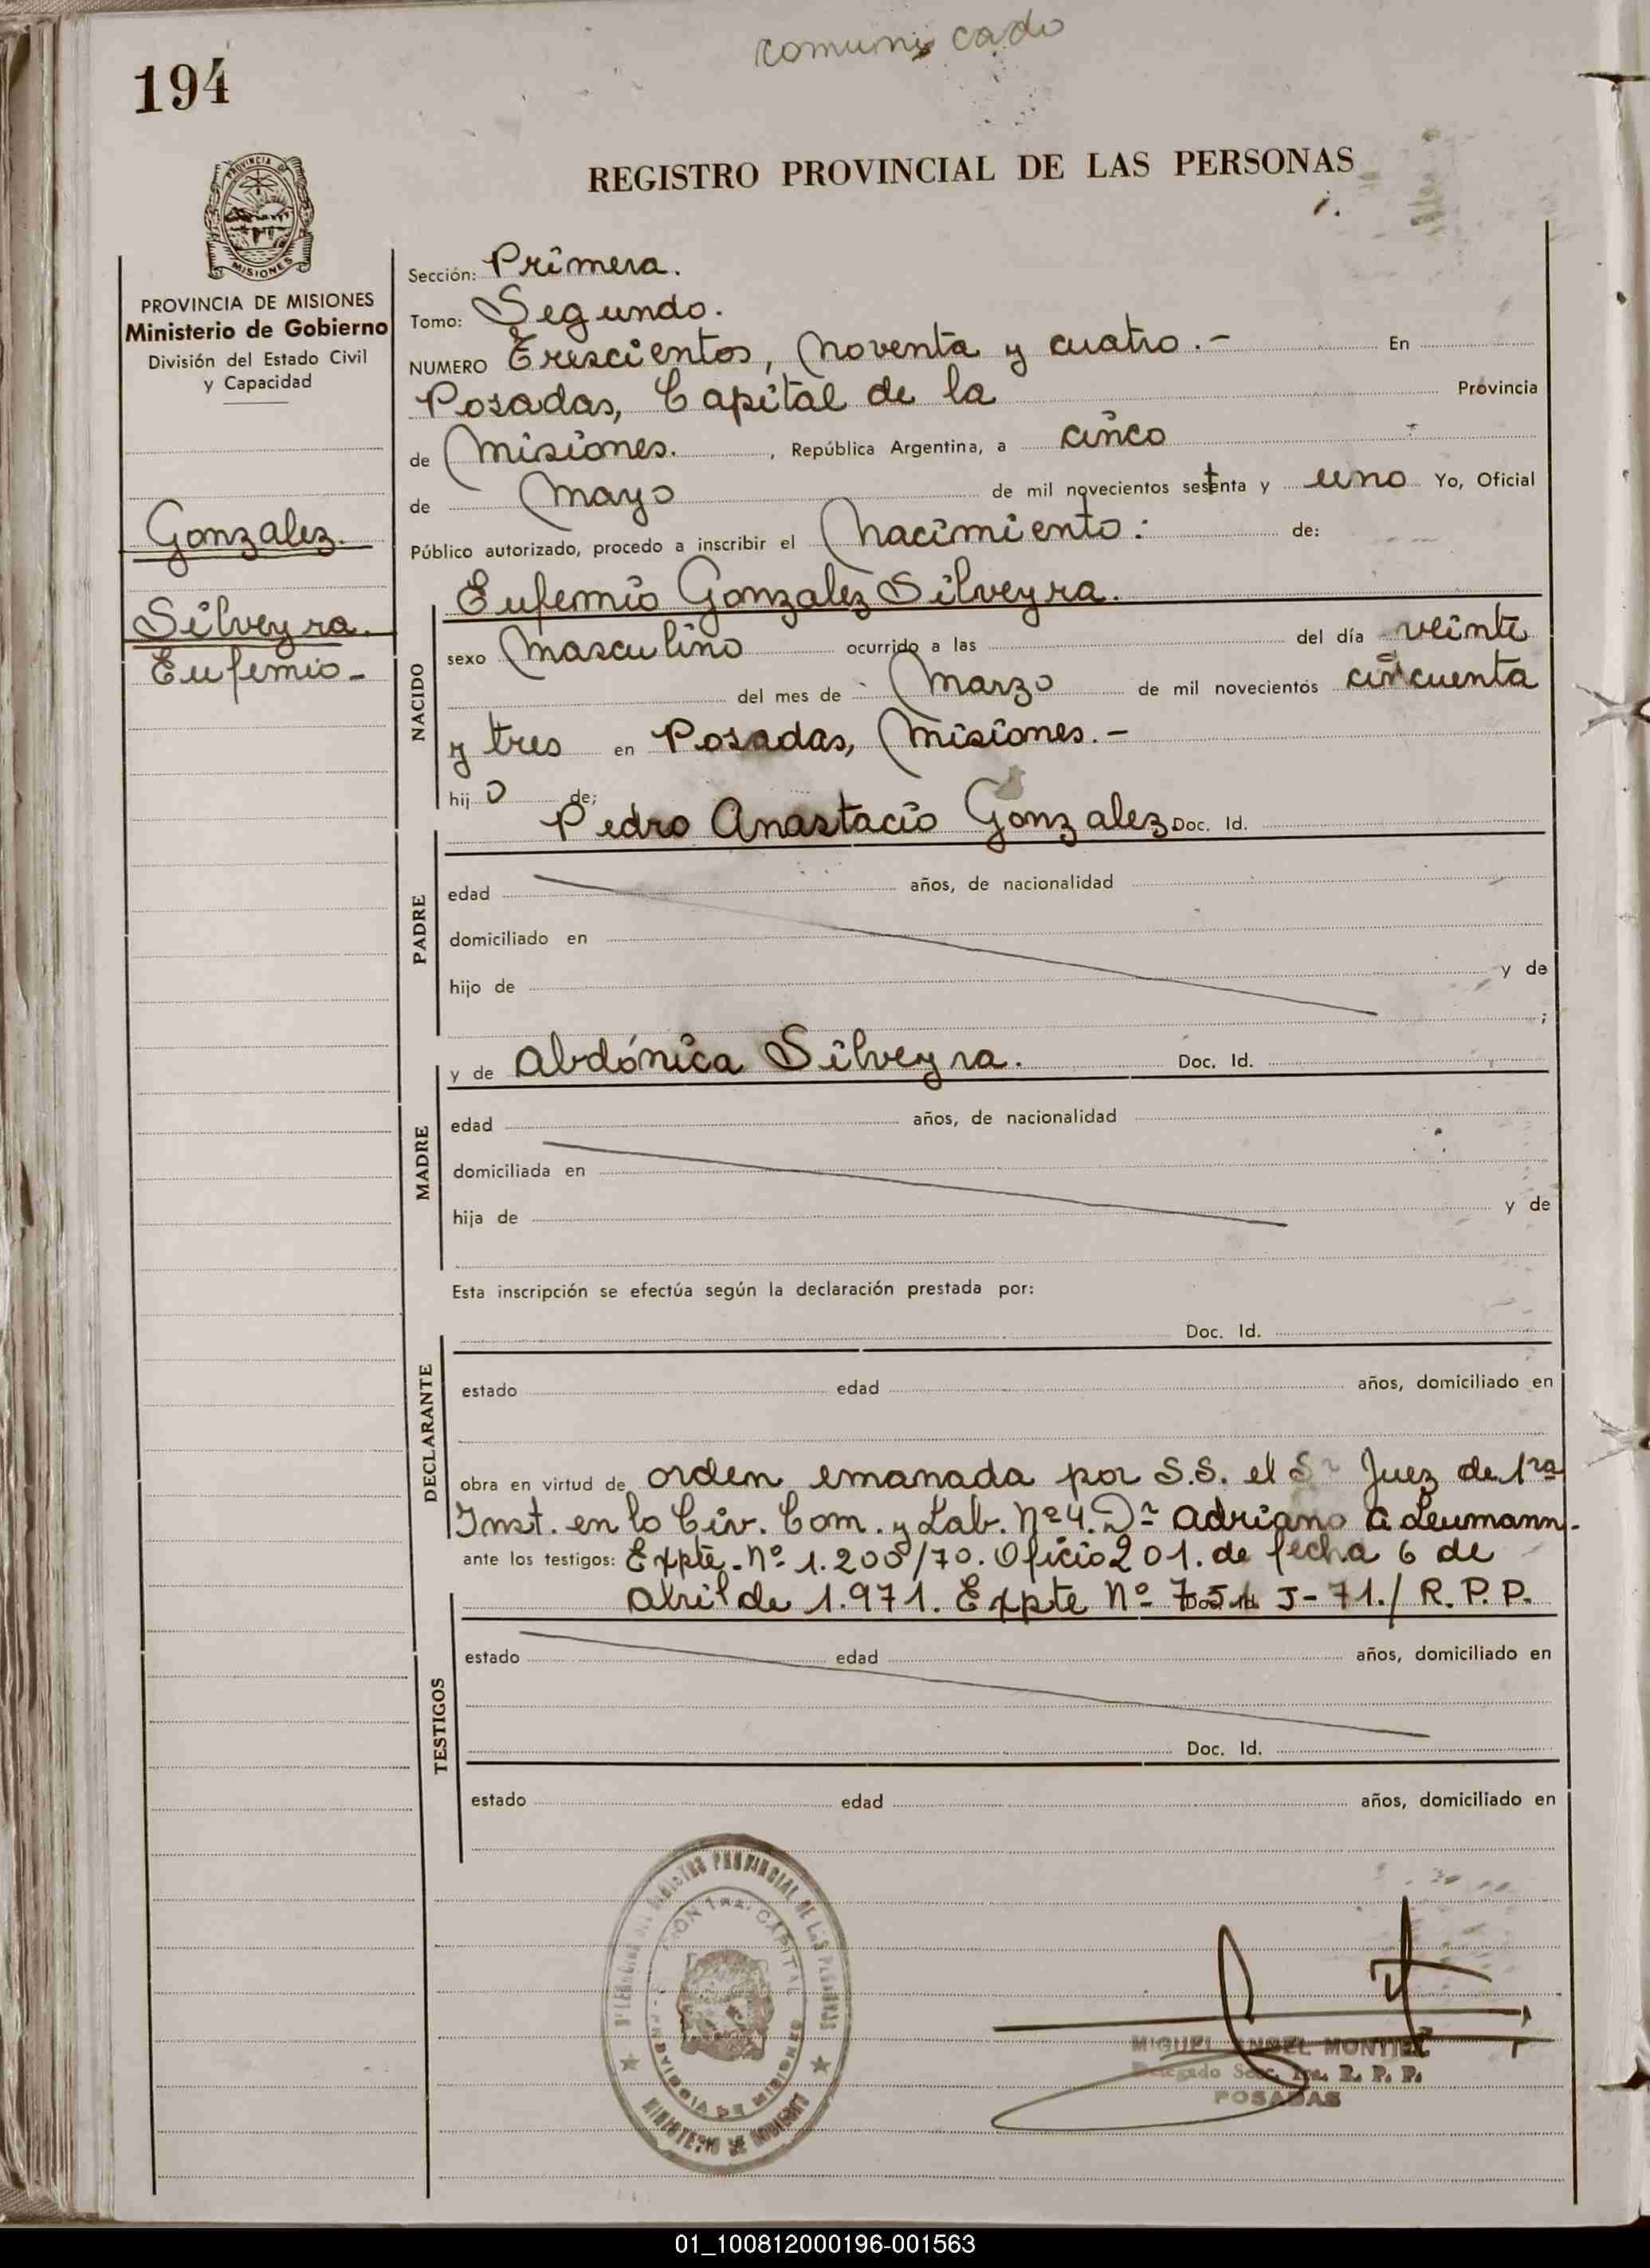 comunicado
194
REGISTRO PROVINCIAL DE LAS PERSONAS
PROVINCIA DE
MISIONES
PROVINCIA DE MISIONES
Ministerio de Gobierno
División del Estado Civil
y Capacidad
Gonzalez.
Silveyra.
Eufemio-
Sección: Primera.
Tomo: Segundo.
NUMERO Trescientos, noventa y cuatro.- En
Posadas, Capital de la Provincia
de Misiones. , República Argentina, a cinco
de Mayo de mil novecientos setenta y uno Yo, Oficial
Público autorizado, procedo a inscribir el Nacimiento: de:
NACIDO
Eufemio Gonzalez Silveyra.
sexo Masculino ocurrido a las del día veinte
del mes de Marzo de mil novecientos cincuenta
y tres en Posadas, Misiones.-
hijo de;
PADRE
Pedro Anastacio Gonzalez Doc. Id.
edad años, de nacionalidad
domiciliado en
hijo de y de
;
MADRE
y de Abdónica Silveyra. Doc. Id.
edad años, de nacionalidad
domiciliada en
hija de y de
Esta inscripción se efectúa según la declaración prestada por:
DECLARANTE
Doc. Id.
estado edad años, domiciliado en
obra en virtud de orden emanada por S.S. el Sr Juez de 1ra
Inst. en lo Civ. Com. y Lab. Nº 4. Dr Adriano A Leumann.
ante los testigos: Expte. Nº 1.200/70. Oficio 201. de fecha 6 de
Abril de 1.971. Expte Nº J-71./ R.P.P.
TESTIGOS
estado edad años, domiciliado en
Doc. Id.
estado edad años, domiciliado en
REGISTRO PROVINCIAL DE LAS PERSONAS
CAPITAL
PROVINCIA DE MISIONES
MINISTERIO DE GOBIERNO
MIGUEL ANGEL MONTIEL
Delegado Secc. 1ra. R. P. P.
POSADAS
01_100812000196-001563